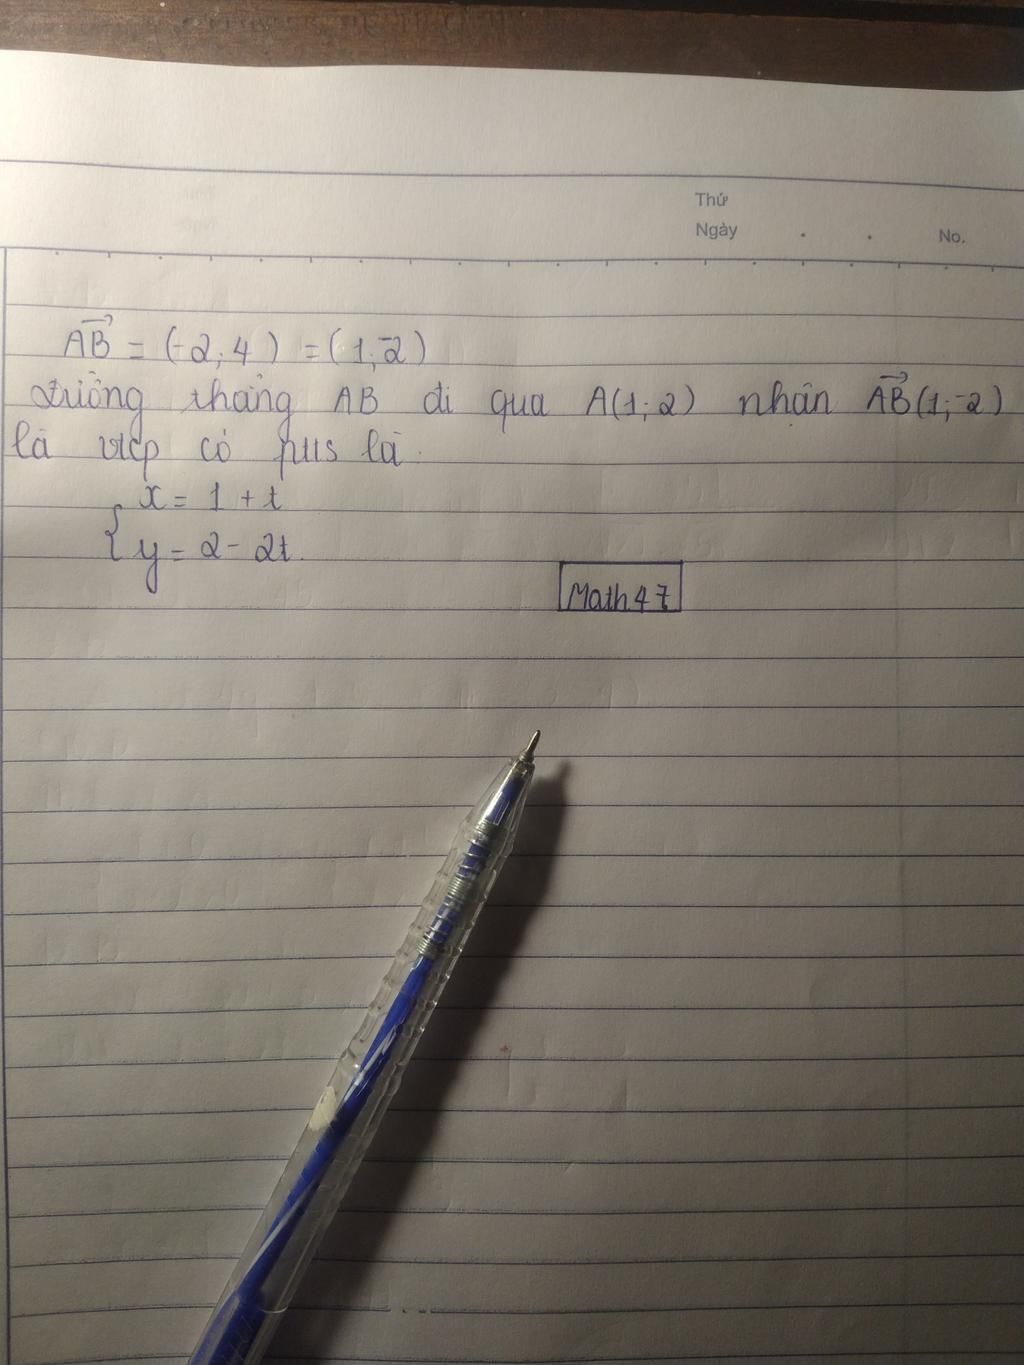 Thứ
Ngày . . No.
AB = (-2; 4) = (1; -2)
đường thẳng AB đi qua A(1; 2) nhận AB(1; -2)
là vtcp có ptts là
{ x = 1 + t
y = 2 - 2t.
Math 47